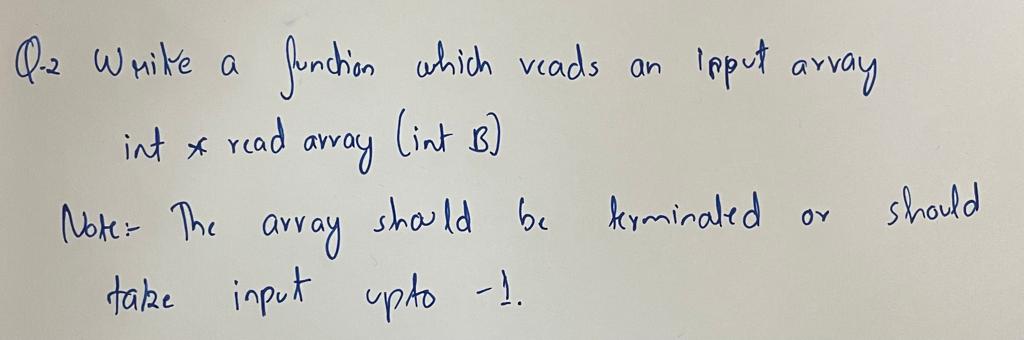 Q.2 Write a function which reads an input array
int * read array (int B)
Note:- The array should be terminated or should
take input upto -1.